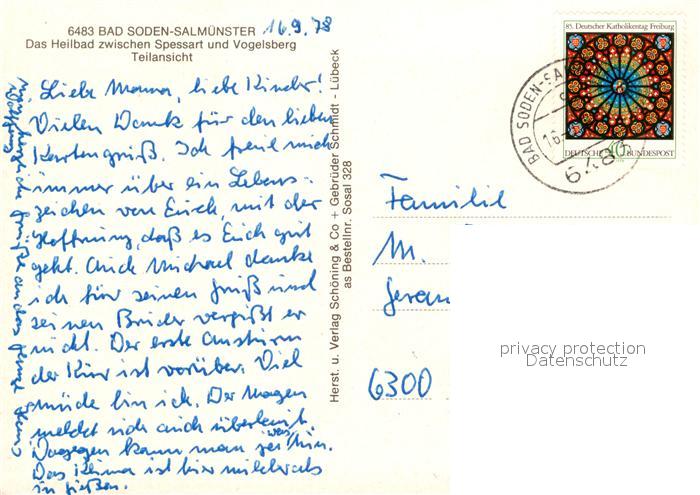 6483 BAD SODEN-SALMÜNSTER
16.9.78
Das Heilbad zwischen Spessart und Vogelsberg
Teilansicht
Liebe Manna, liebe Kinder!
Vielen Dank für den lieben
Kartengruß. Ich freue mich
immer über ein Lebens-
zeichen von Euch, mit der
Hoffnung, daß es Euch gut
geht. Auch Michael danke
ich für seinen Gruß und
seinen Bruder vergißt er
nicht. Der erste Ansturm
der Kur ist vorüber. Viel
müde bin ich. Der Magen
meldet sich auch überlaut.
Dagegen kann man was tun.
Das Klima ist hier milder als
in Gießen.
herzliche Grüße an das ganze Haus
Herst. u. Verlag Schöning & Co + Gebrüder Schmidt - Lübeck
as Bestellnr. Sosal 328
85. Deutscher Katholikentag Freiburg
DEUTSCHE BUNDESPOST
40
BAD SODEN-SA
16.
6483
Familie
M.
6300
privacy protection
Datenschutz